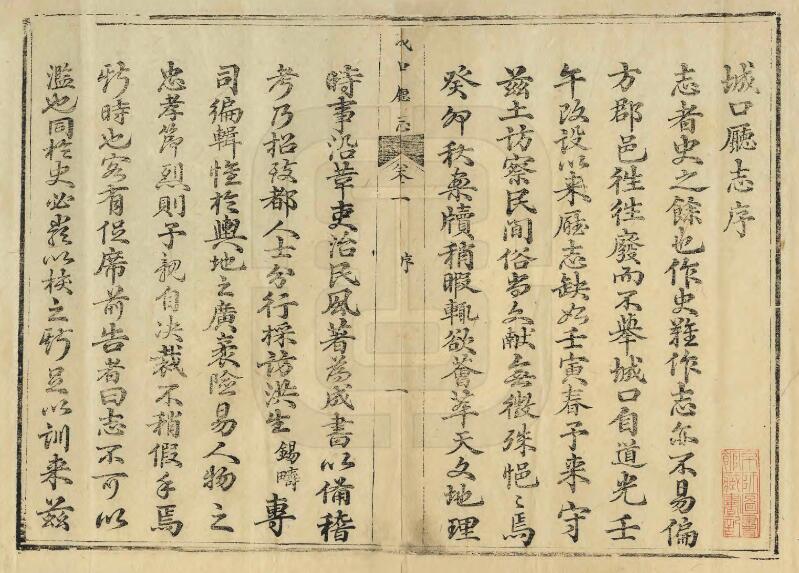 城口廳志序
志者史之餘也作史難作志亦不易偏
方郡邑徃徃廢而不舉城口自道光壬
午改設以来廳志缺如壬寅春予来守
兹土訪察民间俗尚文献無徵殊悒〻焉
癸卯秋案牘稍暇輒欲薈萃天文地理
口廳志 卷一 序 一
時事沿革吏治民風著為成書以備稽
考乃招致都人士分行採訪洪生錫疇專
司編輯惟於輿地之廣袤險易人物之
忠孝節烈則予親自决裁不稍假手焉
時也客有促席前告者曰志不可以
濫也同於史必嚴以核之斯足以訓来兹